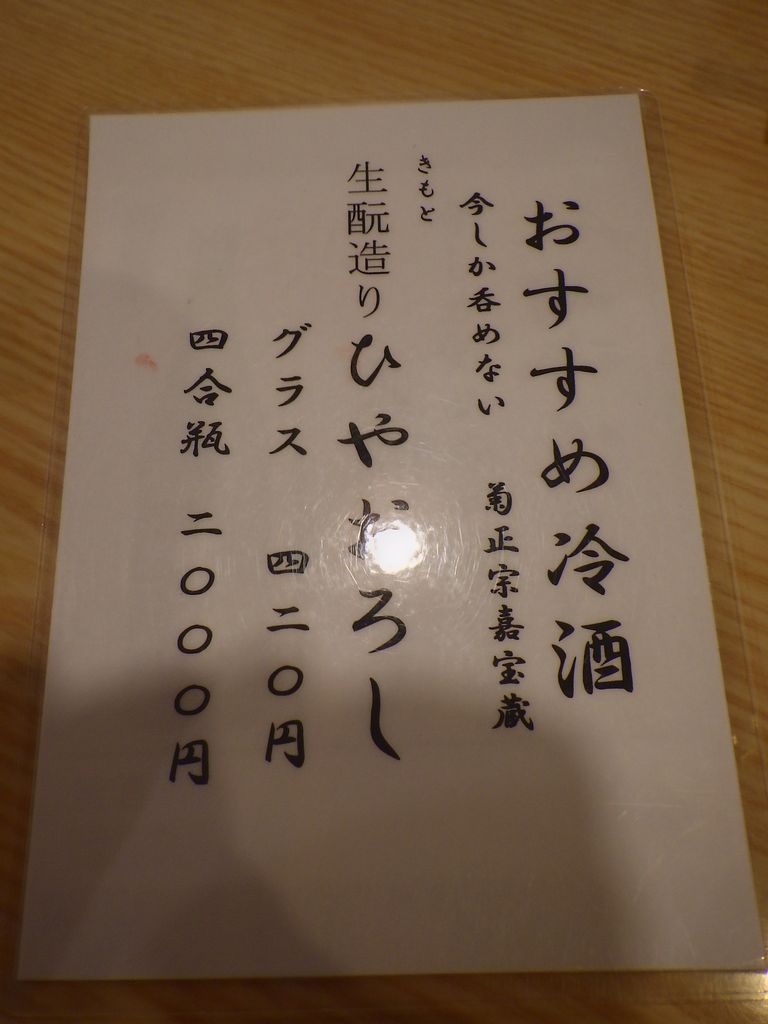 おすすめ冷酒
今しか呑めない 菊正宗嘉宝蔵
きもと
生酛造りひやおろし
グラス 四二〇円
四合瓶 二〇〇〇円